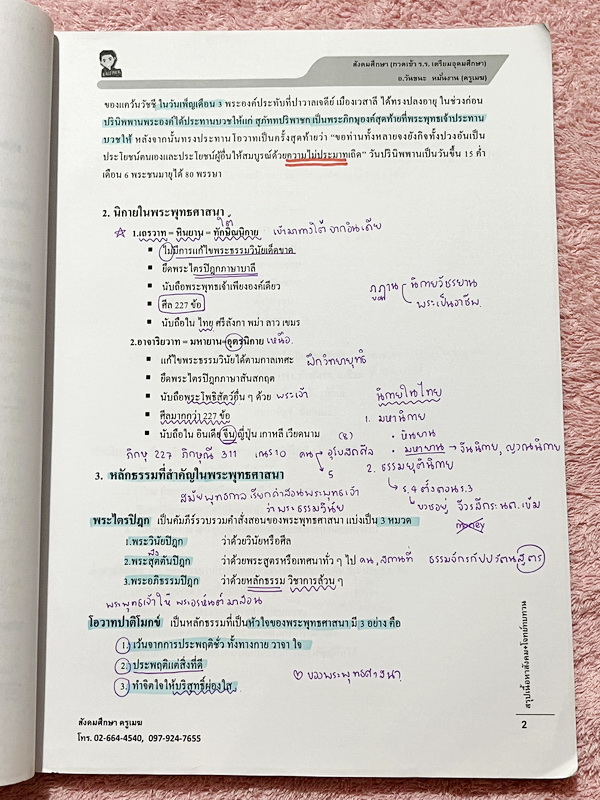 สังคมศึกษา (กวดเข้า ร.ร. เตรียมอุดมศึกษา)
อ.วันชนะ หมั่นงาน (ครูเมฆ)
ของแคว้นวัชชี ในวันเพ็ญเดือน 3 พระองค์ประทับที่ปาวาลเจดีย์ เมืองเวสาลี ได้ทรงปลงอายุ ในช่วงก่อน
ปรินิพพานพระองค์ได้ประทานบวชให้แก่ สุภัททปริพาชก เป็นพระภิกษุองค์สุดท้ายที่พระพุทธเจ้าประทาน
บวชให้ หลังจากนั้นทรงประทานโอวาทเป็นครั้งสุดท้ายว่า “ขอท่านทั้งหลายจงยังกิจทั้งปวงอันเป็น
ประโยชน์ตนเองและประโยชน์ผู้อื่นให้สมบูรณ์ด้วยความไม่ประมาทเถิด” วันปรินิพพานเป็นวันขึ้น 15 ค่ำ
เดือน 6 พระชนมายุได้ 80 พรรษา
2. นิกายในพระพุทธศาสนา
ใต้
1.เถรวาท = หินยาน = ทักษิณนิกาย เข้ามาทางใต้ จากอินเดีย
ไม่มีการแก้ไขพระธรรมวินัยเด็ดขาด
ยึดพระไตรปิฎกภาษาบาลี
นับถือพระพุทธเจ้าเพียงองค์เดียว
ภูฏาน นิกายวัชรยาน
ศีล 227 ข้อ พระเป็นอาชีพ
นับถือใน ไทย ศรีลังกา พม่า ลาว เขมร
2.อาจาริยวาท = มหายาน=อุตรนิกาย เหนือ
แก้ไขพระธรรมวินัยได้ตามกาลเทศะ ฝึกวิทยายุทธ์
ยึดพระไตรปิฎกภาษาสันสกฤต
นับถือพระโพธิสัตว์อื่น ๆ ด้วย พระเจ้า นิกายในไทย
ศีลมากกว่า 227 ข้อ 1. มหานิกาย
• หินยาน
นับถือใน อินเดีย จีน ญี่ปุ่น เกาหลี เวียดนาม (8) • มหายาน → จีนนิกาย, ญวนนิกาย
ภิกษุ 227 ภิกษุณี 311 เณร 10 คน อุโบสถศีล
5
2. ธรรมยุติกนิกาย
3. หลักธรรมที่สำคัญในพระพุทธศาสนา
→ ร.4 ตั้งตอน ร.3
สมัยพุทธกาล เรียกคำสอนพระพุทธเจ้า
ว่า พระธรรมวินัย
พระไตรปิฎก เป็นคัมภีร์รวบรวมคำสั่งสอนของพระพุทธศาสนา แบ่งเป็น 3 หมวด
1.พระวินัยปิฎก ว่าด้วยวินัยหรือศีล
2.พระสุตตันปิฎก ว่าด้วยพระสูตรหรือเทศนาทั่ว ๆ ไป คน, สถานที่ ธรรมจักรกัปปวัตนสูตร
3.พระอภิธรรมปิฎก ว่าด้วยหลักธรรม วิชาการล้วน ๆ
พระพุทธเจ้าให้ พระอรหันต์ มาสอน
โอวาทปาติโมกข์ เป็นหลักธรรมที่เป็นหัวใจของพระพุทธศาสนา มี 3 อย่าง คือ
1. เว้นจากการประพฤติชั่ว ทั้งทางกาย วาจา ใจ
2. ประพฤติแต่สิ่งที่ดี
3. ทำจิตใจให้บริสุทธิ์ผ่องใส
♡ ของพระพุทธศาสนา
สรุปเนื้อหาสังคม+โจทย์ทบทวน
สังคมศึกษา ครูเมฆ
โทร. 02-664-4540, 097-924-7655
2